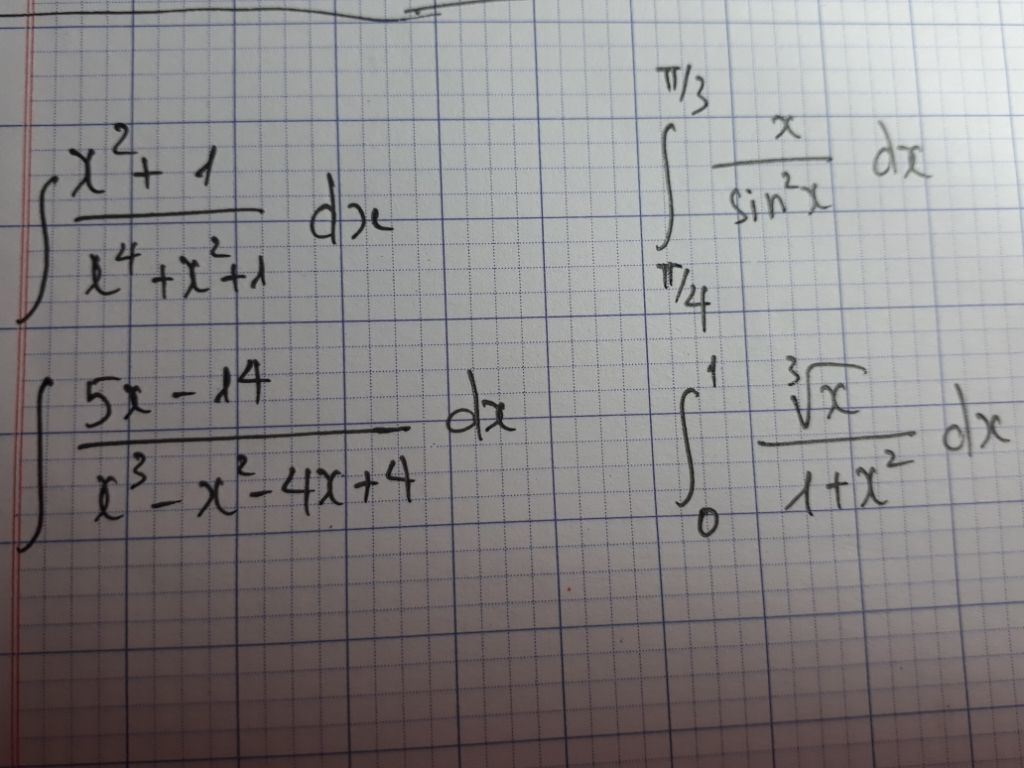 ∫ (x² + 1)/(x⁴ + x² + 1) dx
∫_{π/4}^{π/3} x/sin²x dx
∫ (5x − 14)/(x³ − x² − 4x + 4) dx
∫_0^1 ∛x/(1 + x²) dx